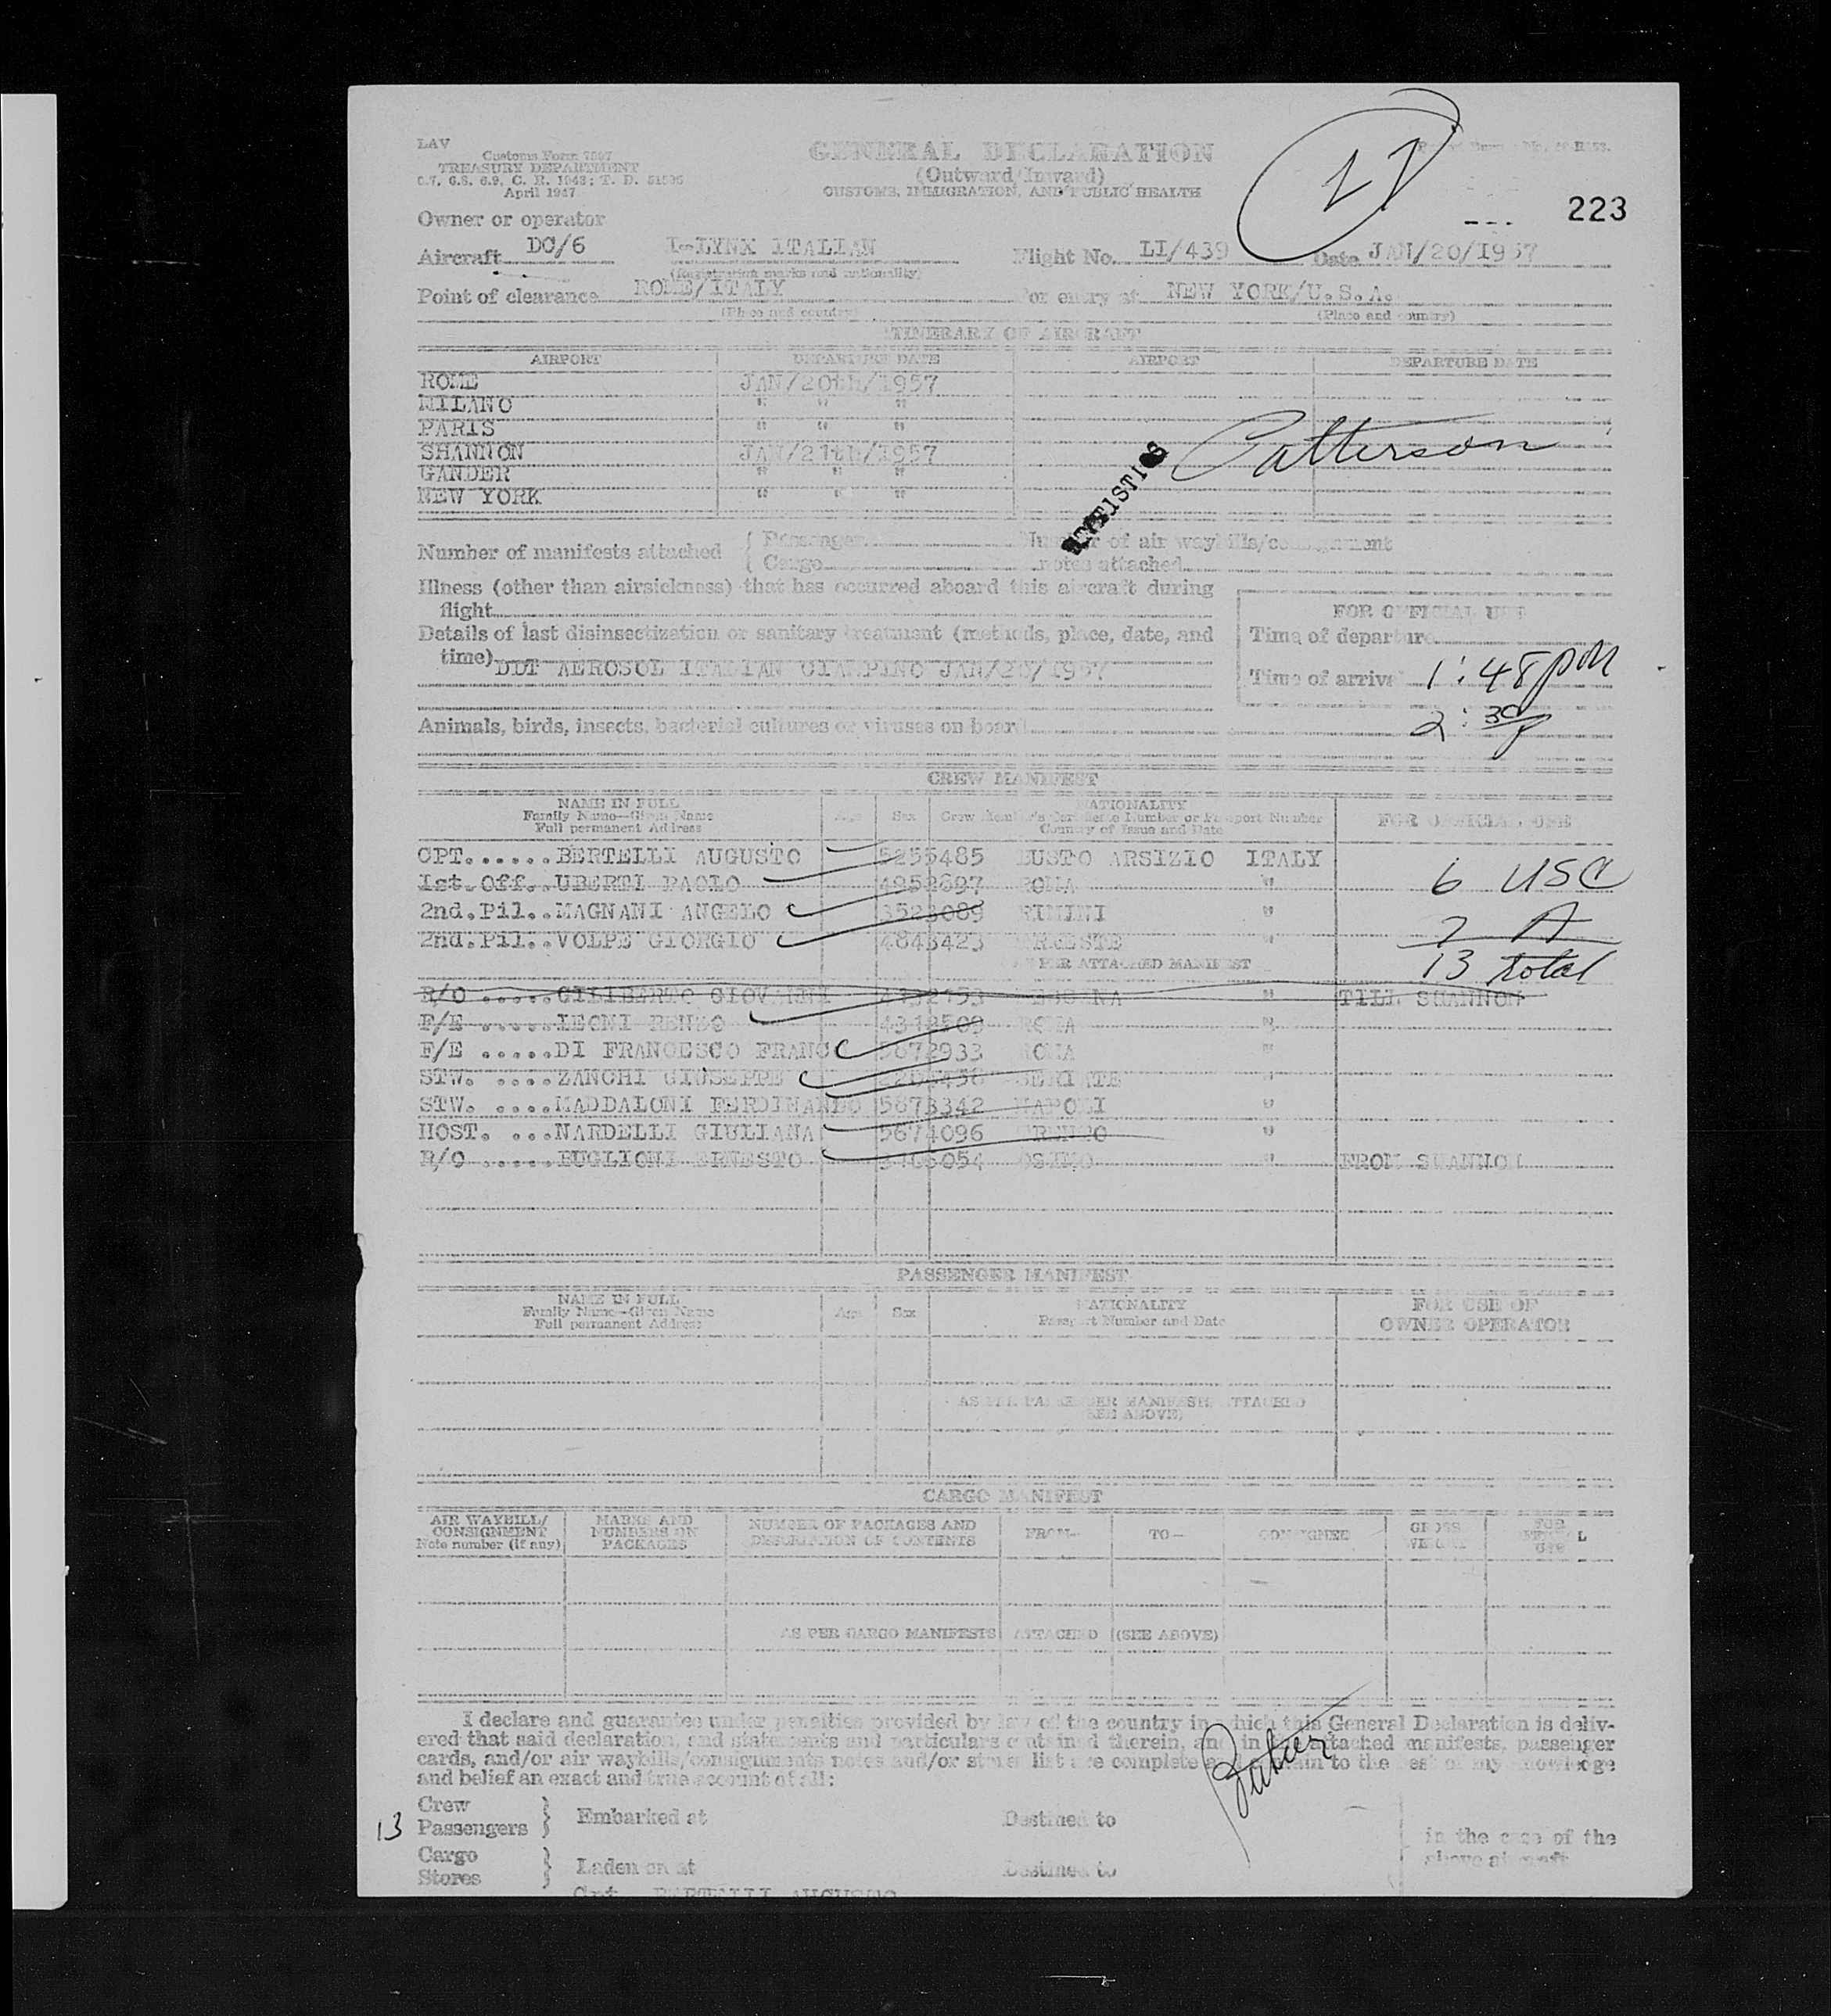 LAV
Customs Form 7507
TREASURY DEPARTMENT
April 1947
GENERAL DECLARATION
(Outward/Inward)
CUSTOMS, IMMIGRATION, AND PUBLIC HEALTH
223
Owner or operator
Aircraft DC/6 I-LYNX ITALIAN Flight No. LI/439 Date JAN/20/1957
(Registration marks and nationality)
Point of clearance ROME/ITALY For entry at NEW YORK/U.S.A.
(Place and country) (Place and country)
ITINERARY OF AIRCRAFT
AIRPORT DEPARTURE DATE AIRPORT DEPARTURE DATE
ROME JAN/20th/1957
MILANO " " "
PARIS " " "
SHANNON JAN/21th/1957
GANDER " " "
NEW YORK " " "
Patterson
STATISTICS
Number of manifests attached { Passenger Number of air waybills/consignment
{ Cargo notes attached
Illness (other than airsickness) that has occurred aboard this aircraft during
flight
Details of last disinsectization or sanitary treatment (methods, place, date, and
time) DDT AEROSOL ITALIAN CIAMPINO JAN/20/1957
FOR OFFICIAL USE
Time of departure
Time of arrival 1:48 PM
2:30 p
Animals, birds, insects, bacterial cultures or viruses on board
CREW MANIFEST
NAME IN FULL
Family Name—Given Name
Full permanent Address
Age Sex
NATIONALITY
Crew Member's Certificate Number or Passport Number
Country of Issue and Date
FOR OFFICIAL USE
CPT......BERTELLI AUGUSTO 5255485 BUSTO ARSIZIO ITALY
1st.Off..UBERTI PAOLO 4952697 ROMA " 6 USC
2nd.Pil..MAGNANI ANGELO 3523089 RIMINI " 7 A
2nd.Pil..VOLPE GIORGIO 4843423 TRIESTE " 13 total
AS PER ATTACHED MANIFEST
R/O .....GILIBERTO GIOVANNI " TILL SHANNON
F/E .....LEONI RENZO 4312509 ROMA "
F/E .....DI FRANCESCO FRANC 5672933 ROMA "
STW. ....ZANCHI GIUSEPPE SERIATE "
STW. ....MADDALONI FERDINANDO 5673342 NAPOLI "
HOST. ...NARDELLI GIULIANA 5674096 TRENTO "
R/O .....BUGLIONI ERNESTO OSIMO " FROM SHANNON
PASSENGER MANIFEST
NAME IN FULL
Family Name—Given Name
Full permanent Address
Age Sex
NATIONALITY
Passport Number and Date
FOR USE OF
OWNER OPERATOR
AS PER PASSENGER MANIFESTS ATTACHED
(SEE ABOVE)
CARGO MANIFEST
AIR WAYBILL/
CONSIGNMENT
Note number (if any)
MARKS AND
NUMBERS ON
PACKAGES
NUMBER OF PACKAGES AND
DESCRIPTION OF CONTENTS
FROM— TO— CONSIGNEE
GROSS
WEIGHT
FOR
OFFICIAL
USE
AS PER CARGO MANIFESTS ATTACHED (SEE ABOVE)
I declare and guarantee under penalties provided by law of the country in which this General Declaration is deliv-
ered that said declaration, and statements and particulars contained therein, and in the attached manifests, passenger
cards, and/or air waybills/consignments notes and/or stores list are complete and contain to the best of my knowledge
and belief an exact and true account of all:
Crew
13 Passengers } Embarked at Destined to
in the case of the
above aircraft
Cargo
Stores } Laden on at Destined to
Cpt. BERTELLI AUGUSTO